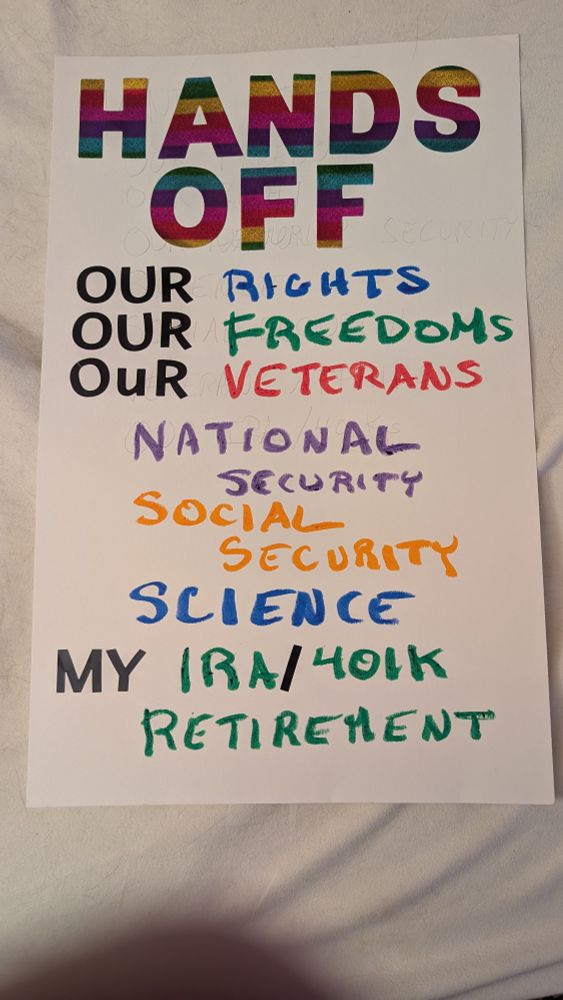 HANDS
OFF
OUR RIGHTS
OUR FREEDOMS
OuR VETERANS
NATIONAL
SECURITY
SOCIAL
SECURITY
SCIENCE
MY IRA/401K
RETIREMENT